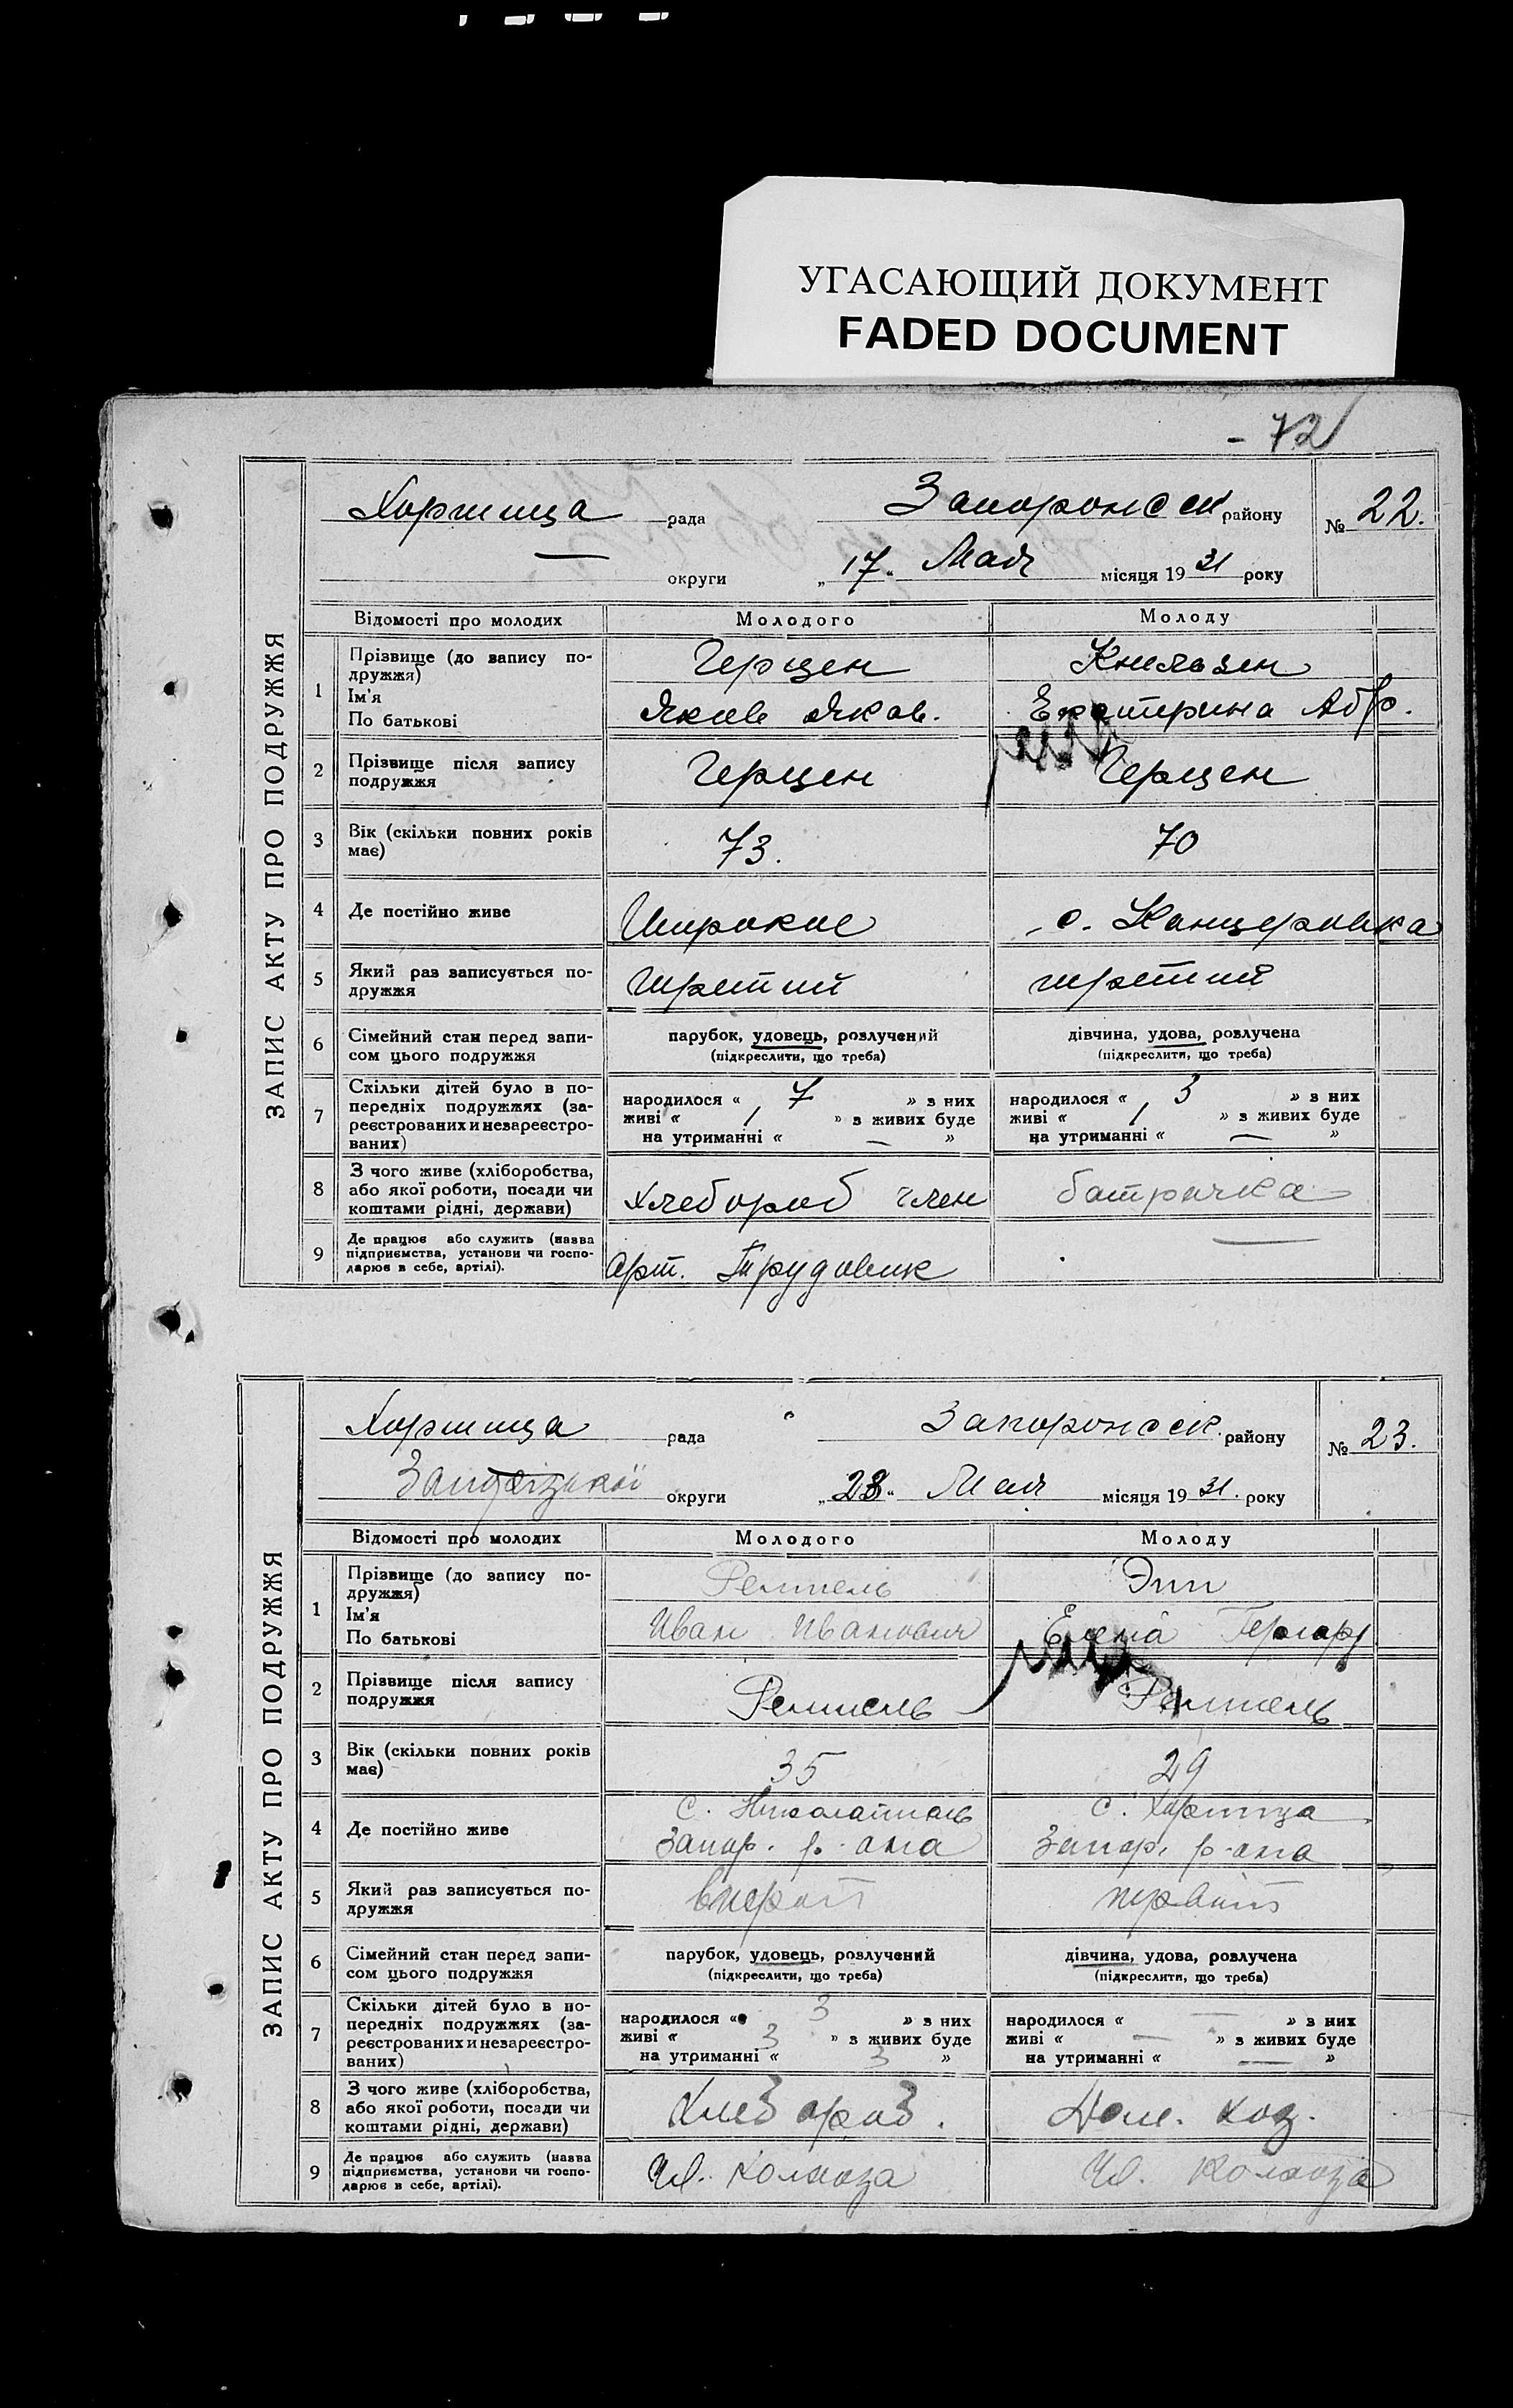 УГАСАЮЩИЙ ДОКУМЕНТ
FADED DOCUMENT
- 72
ЗАПИС АКТУ ПРО ПОДРУЖЖЯ
Хортица рада Запорожск району № 22.
— округи „17„ Мая місяця 1931 року
Відомості про молодих Молодого Молоду
1 Прізвище (до запису по-
дружжя)
Ім'я
По батькові
Герцен
Яков Яков.
Книльзен
Екатерина Абр.
2 Прізвище після запису
подружжя
Герцен
Герцен
3 Вік (скільки повних років
має)
73.
70
4 Де постійно живе
Широкое
с. Канцеровка
5 Який раз записується по-
дружжя
третий
третий
6 Сімейний стан перед запи-
сом цього подружжя
парубок, удовець, розлучений
(підкреслити, що треба)
дівчина, удова, розлучена
(підкреслити, що треба)
7 Скільки дітей було в по-
передніх подружжях (за-
реєстрованих и незареєстро-
ваних)
народилося « 7 » з них
живі « 1 » з живих буде
на утриманні « — »
народилося « 3 » з них
живі « 1 » з живих буде
на утриманні « — »
8 З чого живе (хліборобства,
або якої роботи, посади чи
коштами рідні, держави)
Хлебороб член
батрачка
9 Де працює або служить (назва
підприємства, установи чи госпо-
дарює в себе, артілі).
арт. Трудовик
—
ЗАПИС АКТУ ПРО ПОДРУЖЖЯ
Хортица рада Запорожск. району № 23.
Запорізької округи „28„ Мая місяця 1931. року
Відомості про молодих Молодого Молоду
1 Прізвище (до запису по-
дружжя)
Ім'я
По батькові
Ремпель
Иван Иванович
Эпп
Елена Гергард
2 Прізвище після запису
подружжя
Ремпель
Ремпель
3 Вік (скільки повних років
має)
35
29
4 Де постійно живе
с. Николайполь
Запор. р-она
с. Хортица
Запор. р-она
5 Який раз записується по-
дружжя
второй
первый
6 Сімейний стан перед запи-
сом цього подружжя
парубок, удовець, розлучений
(підкреслити, що треба)
дівчина, удова, розлучена
(підкреслити, що треба)
7 Скільки дітей було в по-
передніх подружжях (за-
реєстрованих и незареєстро-
ваних)
народилося « 3 » з них
живі « 3 » з живих буде
на утриманні « 3 »
народилося « — » з них
живі « — » з живих буде
на утриманні « — »
8 З чого живе (хліборобства,
або якої роботи, посади чи
коштами рідні, держави)
Хлебороб.
Дом. хоз.
9 Де працює або служить (назва
підприємства, установи чи госпо-
дарює в себе, артілі).
Чл. колхоза
Чл. колхоза